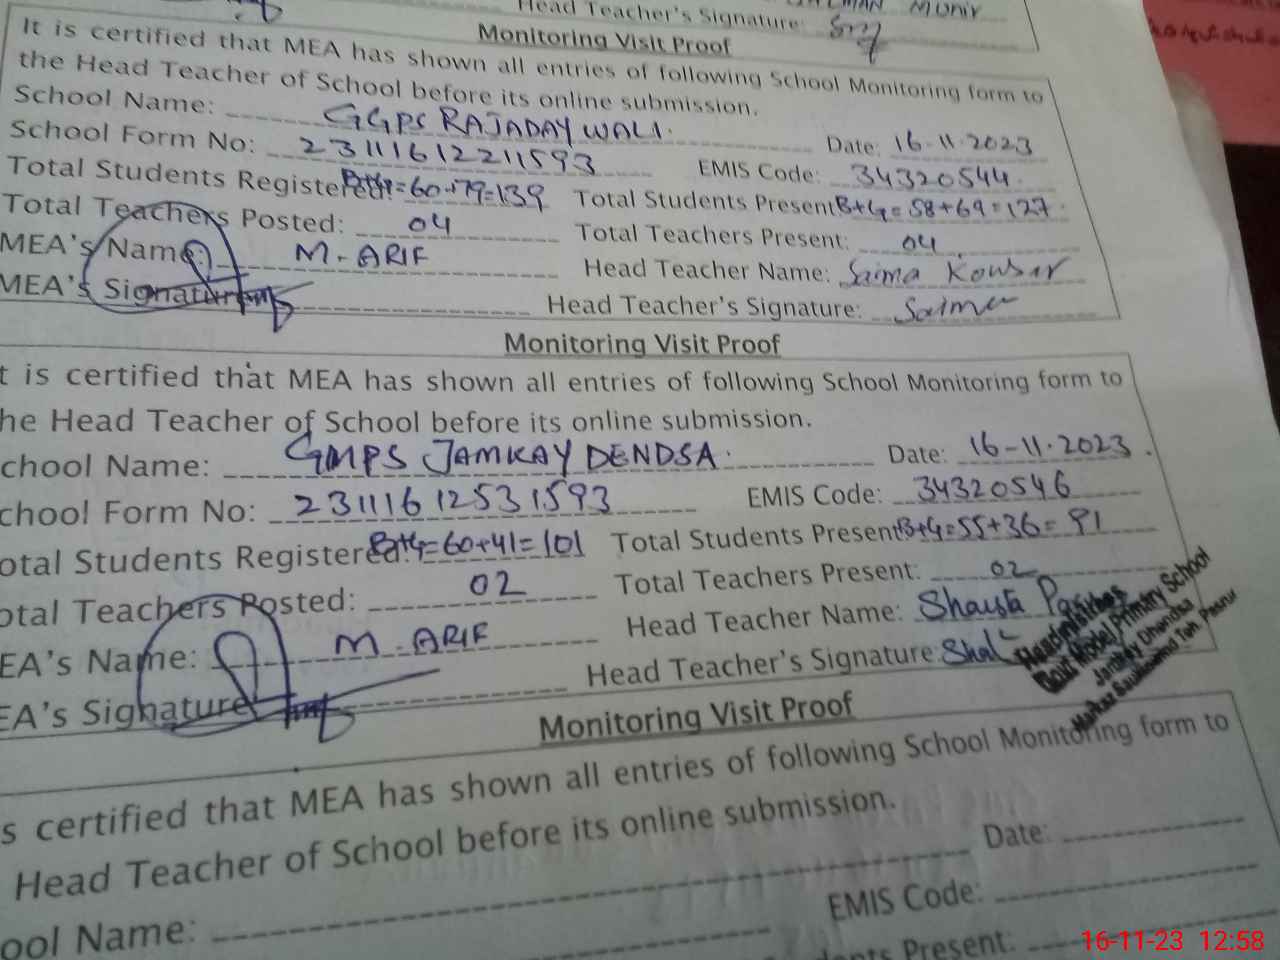 Head Teacher's Signature:
Monitoring Visit Proof
It is certified that MEA has shown all entries of following School Monitoring form to
the Head Teacher of School before its online submission.
School Name: GGPS RAJADAY WALI. Date: 16-11-2023
School Form No: 23111612211593 EMIS Code: 34320544.
Total Students Registered: B+G=60+79=139 Total Students Present B+G=58+69=127.
Total Teachers Posted: 04 Total Teachers Present: 04
MEA's Name: M. ARIF Head Teacher Name: Saima Kowsar
MEA's Signature Head Teacher's Signature: Saima
Monitoring Visit Proof
t is certified that MEA has shown all entries of following School Monitoring form to
he Head Teacher of School before its online submission.
chool Name: GMPS JAMKAY DENDSA. Date: 16-11-2023.
chool Form No: 23111612531593 EMIS Code: 34320546
otal Students Registered: B+G=60+41=101 Total Students Present B+G=55+36=91
otal Teachers Posted: 02 Total Teachers Present: 02
EA's Name: M. ARIF Head Teacher Name: Shaista
EA's Signature Head Teacher's Signature:
Headmistress
Govt Model Primary School
Monitoring Visit Proof
s certified that MEA has shown all entries of following School Monitoring form to
Head Teacher of School before its online submission.
Date:
ool Name: EMIS Code:
nts Present:
16-11-23 12:58